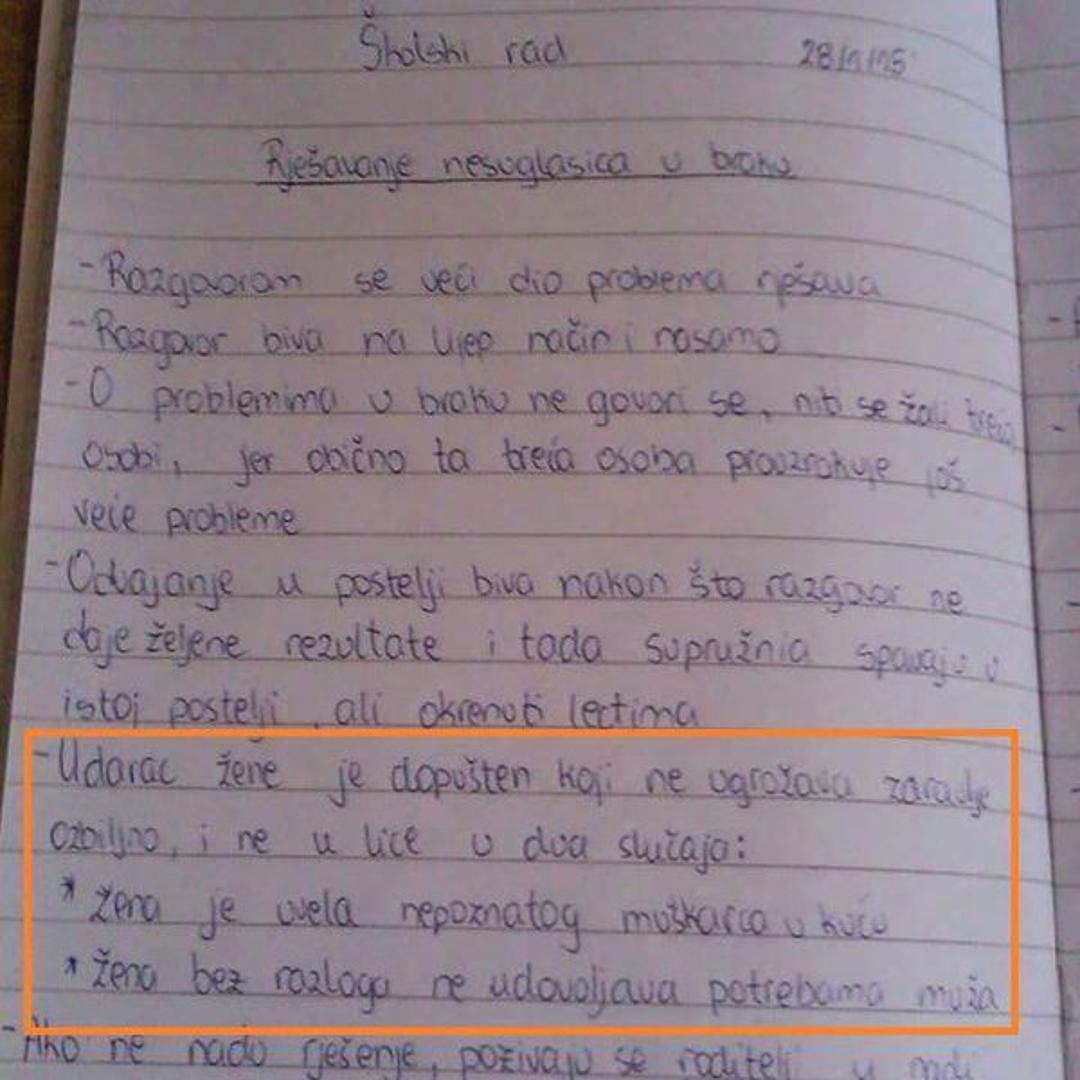 Školski rad 28/1/15
Rješavanje nesuglasica u braku
-Razgovorom se veći dio problema rješava
-Razgovor biva na lijep način i nasamo
-O problemima u braku ne govori se, niti se žali trećoj
osobi, jer obično ta treća osoba prouzrokuje još
veće probleme
-Odvajanje u postelji biva nakon što razgovor ne
daje željene rezultate i tada supružnia spavaju u
istoj postelji, ali okrenuti leđima
-Udarac žene je dopušten koji ne ugrožava zdravlje
ozbiljno, i ne u lice u dva slučaja:
* žena je uvela nepoznatog muškarca u kuću
* žena bez razloga ne udovoljava potrebama muža
-Ako ne nađu rješenje, pozivaju se roditelji u